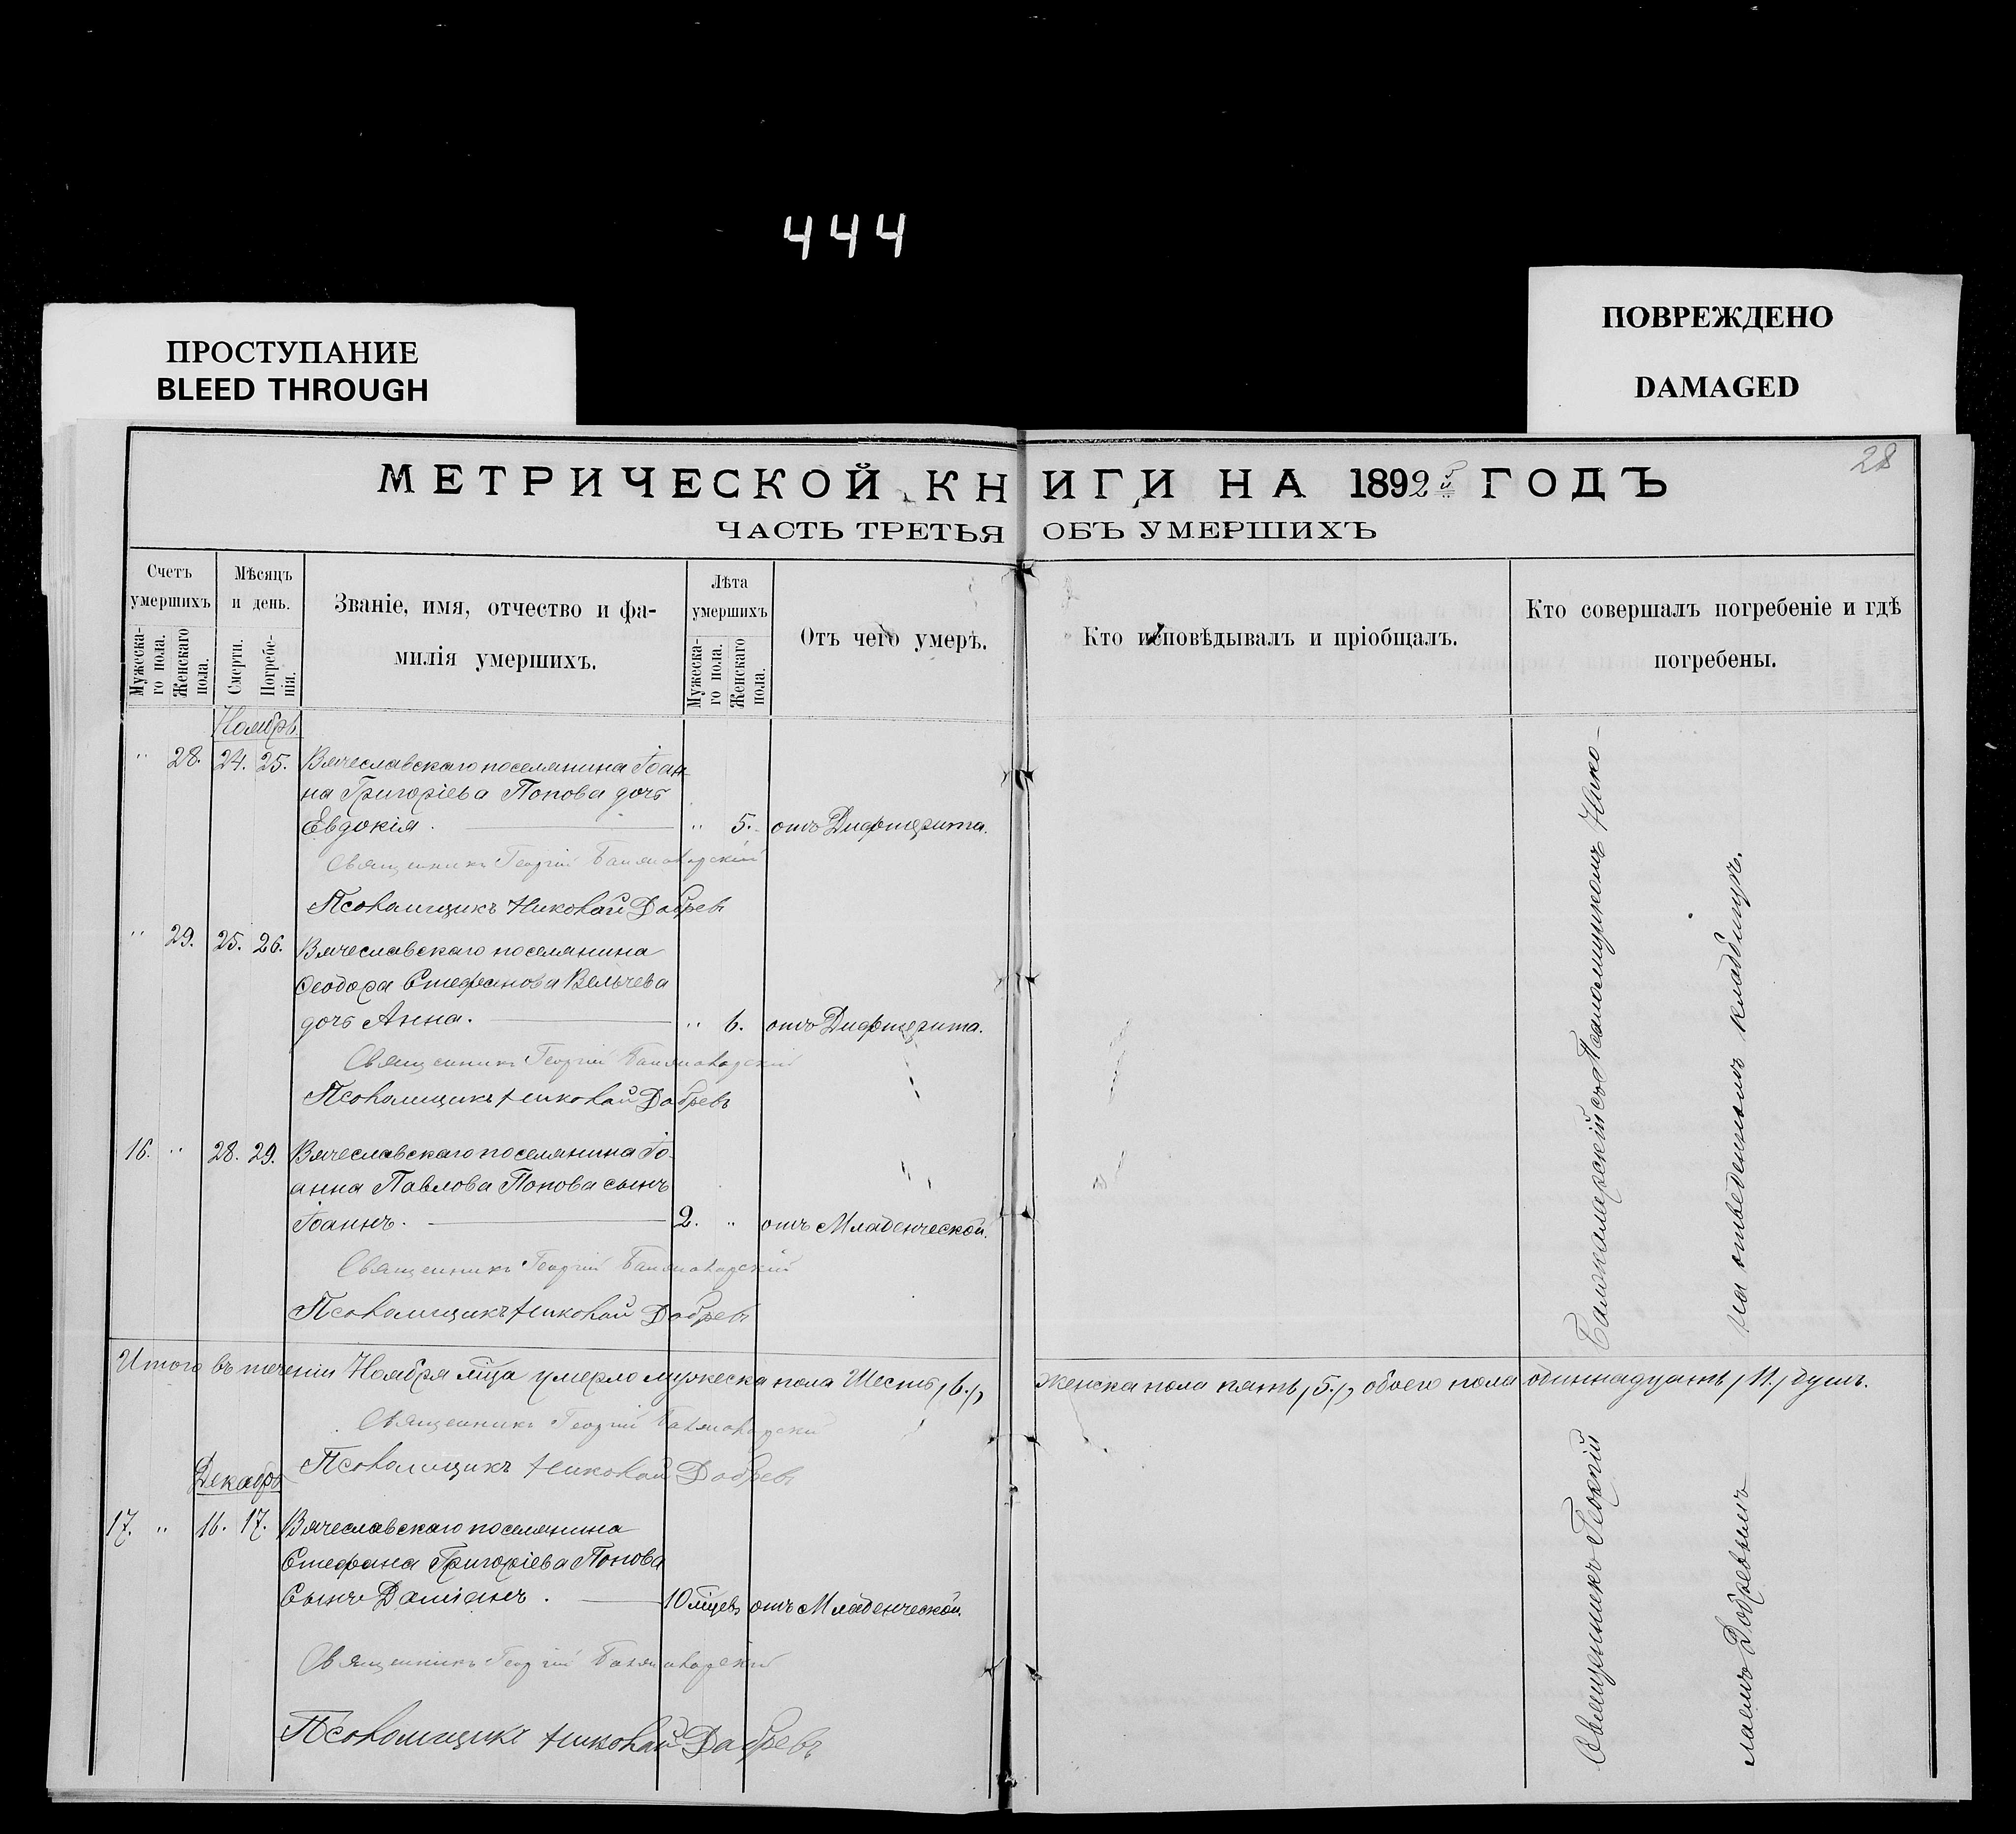 444
ПРОСТУПАНИЕ
BLEED THROUGH
ПОВРЕЖДЕНО
DAMAGED
28
МЕТРИЧЕСКОЙ КНИГИ НА 1892й ГОДЪ
ЧАСТЬ ТРЕТЬЯ ОБЪ УМЕРШИХЪ
Счетъ умершихъ
Мужеска-го пола.
Женскаго пола.
Мѣсяцъ и день.
Смерти.
Погребе-нія.
Званіе, имя, отчество и фа-
милія умершихъ.
Лѣта умершихъ
Мужеска-го пола.
Женскаго пола.
Отъ чего умеръ.
Кто исповѣдывалъ и пріобщалъ.
Кто совершалъ погребеніе и гдѣ
погребены.
Ноябрь
" 28. 24. 25. Вячеславскаго поселянина Іоан-
на Григоріева Попова дочь
Евдокія. " 5. отъ Дифтерита.
Священникъ Георгій
Псаломщикъ Николай Добревъ
" 29. 25. 26. Вячеславскаго поселянина
Ѳеодора Стефанова Вельчева
дочь Анна. " 6. отъ Дифтерита.
Священникъ Георгій
Псаломщикъ Николай Добревъ
16. " 28. 29. Вячеславскаго поселянина Іо-
анна Павлова Попова сынъ
Іоаннъ. 2. " отъ Младенческой.
Священникъ Георгій
Псаломщикъ Николай Добревъ
Итого въ теченіи Ноября мѣца умерло мужеска пола Шесть /6./, женска пола пять /5./, обоего пола одиннадцать /11./ душъ.
Священникъ Георгій
Псаломщикъ Николай Добревъ
Декабрь
17. " 16. 17. Вячеславскаго поселянина
Стефана Григоріева Попова
Сынъ Даміанъ. 10 мцевъ отъ Младенческой.
Священникъ Георгій
Псаломщикъ Николай Добревъ
Священникъ Георгій
съ Псаломщикомъ Нико-
лаемъ Добревымъ
на отведенномъ кладбищѣ.